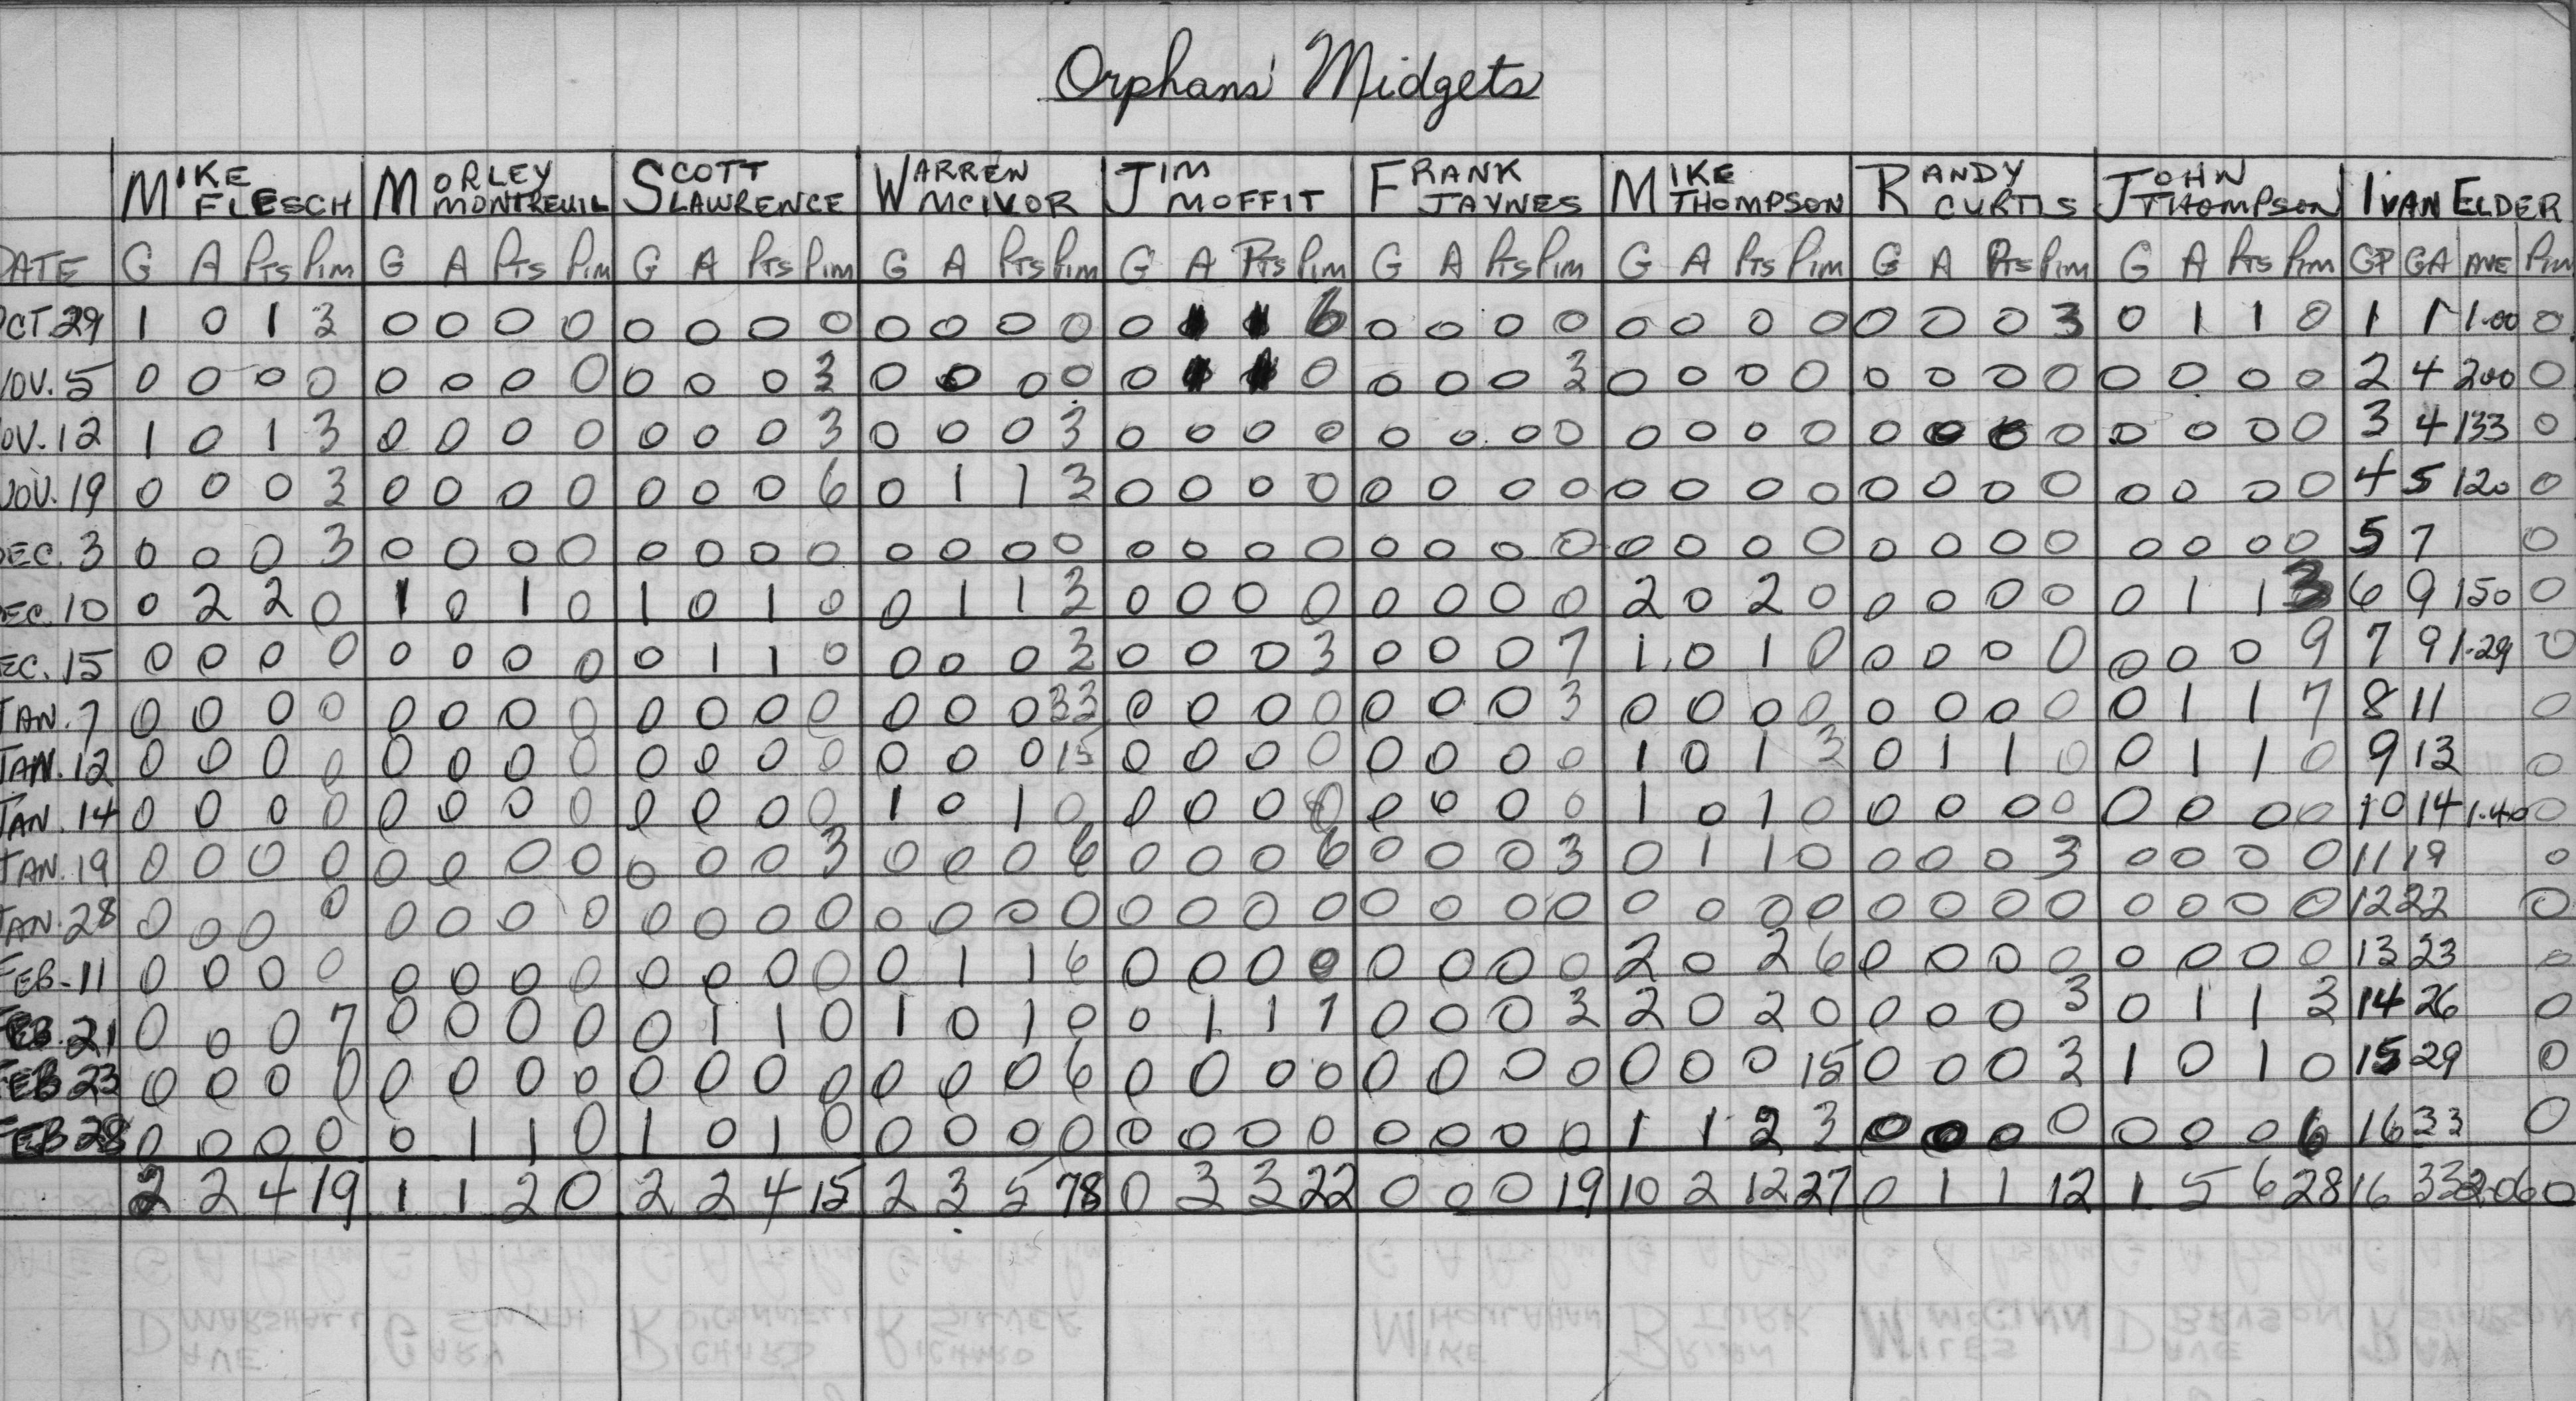 Orphans' Midgets
MIKE FLESCH MORLEY MONTREUIL SCOTT LAWRENCE WARREN MCIVOR JIM MOFFIT FRANK JAYNES MIKE THOMPSON RANDY CURTIS JOHN THOMPSON IVAN ELDER
DATE G A Pts Pim G A Pts Pim G A Pts Pim G A Pts Pim G A Pts Pim G A Pts Pim G A Pts Pim G A Pts Pim G A Pts Pim GP GA AVE Pim
OCT. 29 1 0 1 3 0 0 0 0 0 0 0 0 0 0 0 0 0 6 0 0 0 0 0 0 0 0 0 0 0 3 0 1 1 0 1 1 1.00 0
NOV. 5 0 0 0 0 0 0 0 0 0 0 0 3 0 0 0 0 0 0 0 0 0 3 0 0 0 0 0 0 0 0 0 0 0 0 2 4 200 0
NOV. 12 1 0 1 3 0 0 0 0 0 0 0 3 0 0 0 3 0 0 0 0 0 0 0 0 0 0 0 0 0 0 0 0 0 0 0 0 3 4 133 0
NOV. 19 0 0 0 3 0 0 0 0 0 0 0 6 0 1 1 3 0 0 0 0 0 0 0 0 0 0 0 0 0 0 0 0 0 0 0 0 4 5 120 0
DEC. 3 0 0 0 3 0 0 0 0 0 0 0 0 0 0 0 0 0 0 0 0 0 0 0 0 0 0 0 0 0 0 0 0 0 0 0 0 5 7 0
DEC. 10 0 2 2 0 1 0 1 0 1 0 1 0 0 1 1 3 0 0 0 0 0 0 0 0 2 0 2 0 0 0 0 0 0 1 1 3 6 9 150 0
DEC. 15 0 0 0 0 0 0 0 0 0 1 1 0 0 0 0 3 0 0 0 3 0 0 0 7 1 0 1 0 0 0 0 0 0 0 0 9 7 9 1.29 0
JAN. 7 0 0 0 0 0 0 0 0 0 0 0 0 0 0 0 33 0 0 0 0 0 0 0 3 0 0 0 0 0 0 0 0 0 1 1 7 8 11 0
JAN. 12 0 0 0 0 0 0 0 0 0 0 0 0 0 0 0 15 0 0 0 0 0 0 0 0 1 0 1 3 0 1 1 0 0 1 1 0 9 13 0
JAN. 14 0 0 0 0 0 0 0 0 0 0 0 0 1 0 1 0 0 0 0 0 0 0 0 1 0 1 0 0 0 0 0 0 0 0 0 10 14 1.40 0
JAN. 19 0 0 0 0 0 0 0 0 0 0 0 3 0 0 0 6 0 0 0 6 0 0 0 3 0 1 1 0 0 0 0 3 0 0 0 0 11 19 0
JAN. 28 0 0 0 0 0 0 0 0 0 0 0 0 0 0 0 0 0 0 0 0 0 0 0 0 0 0 0 0 0 0 0 0 0 0 0 0 12 22 0
FEB-11 0 0 0 0 0 0 0 0 0 0 0 0 0 1 1 6 0 0 0 0 0 0 0 0 2 0 2 6 0 0 0 0 0 0 0 0 13 23 0
FEB. 21 0 0 0 7 0 0 0 0 0 1 1 0 1 0 1 0 0 1 1 7 0 0 0 3 2 0 2 0 0 0 0 3 0 1 1 3 14 26 0
FEB 23 0 0 0 0 0 0 0 0 0 0 0 0 0 0 0 6 0 0 0 0 0 0 0 0 0 0 0 15 0 0 0 3 1 0 1 0 15 29 0
FEB 28 0 0 0 0 0 1 1 0 1 0 1 0 0 0 0 0 0 0 0 0 0 0 0 0 1 1 2 3 0 0 0 0 0 0 0 6 16 33 0
2 2 4 19 1 1 2 0 2 2 4 15 2 3 5 78 0 3 3 22 0 0 0 19 10 2 12 27 0 1 1 12 1 5 6 28 16 33 2.06 0